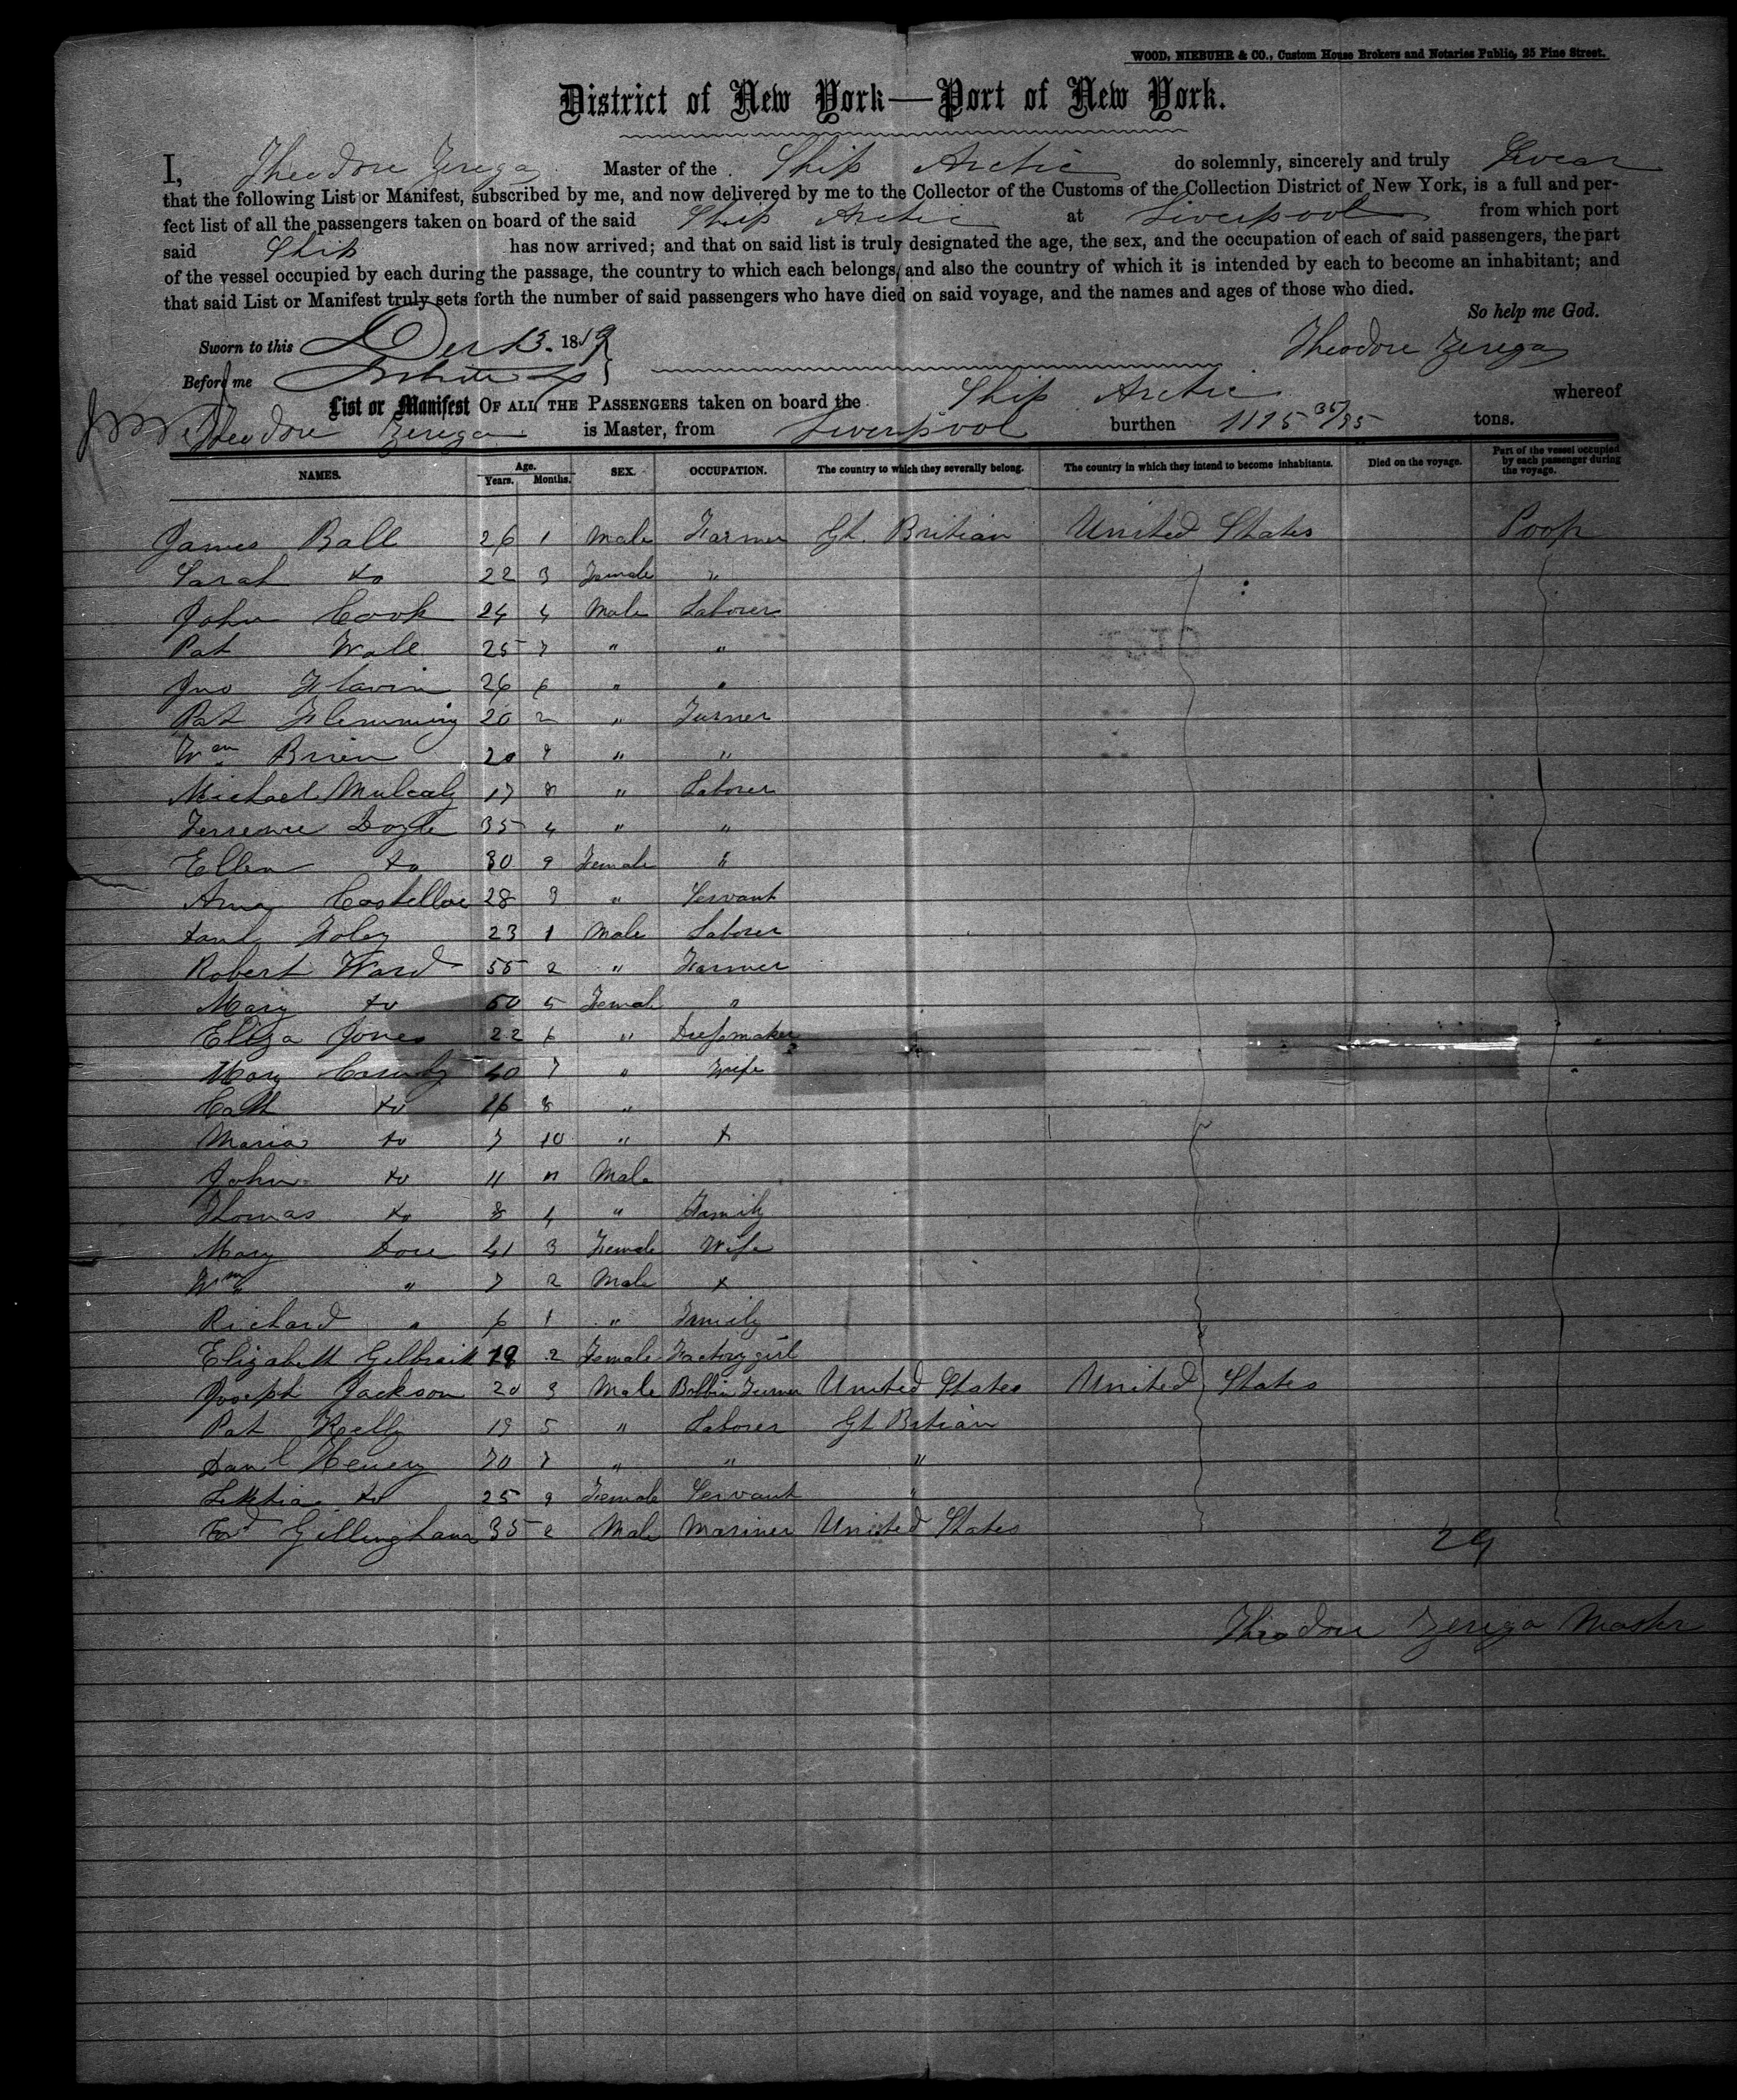 WOOD, NIEBUHR & CO., Custom House Brokers and Notaries Public, 25 Pine Street.
District of New York—Port of New York.
I, Theodore Zerega Master of the Ship Arctic do solemnly, sincerely and truly Swear
that the following List or Manifest, subscribed by me, and now delivered by me to the Collector of the Customs of the Collection District of New York, is a full and per-
fect list of all the passengers taken on board of the said Ship Arctic at Liverpool from which port
said Ship has now arrived; and that on said list is truly designated the age, the sex, and the occupation of each of said passengers, the part
of the vessel occupied by each during the passage, the country to which each belongs, and also the country of which it is intended by each to become an inhabitant; and
that said List or Manifest truly sets forth the number of said passengers who have died on said voyage, and the names and ages of those who died.
So help me God.
Sworn to this Dec 13. 18 Theodore Zerega
Before me
List or Manifest OF ALL THE PASSENGERS taken on board the Ship Arctic whereof
Theodore Zerega is Master, from Liverpool burthen 1115 35/95 tons.
NAMES. Age. Years. Months. SEX. OCCUPATION. The country to which they severally belong. The country in which they intend to become inhabitants. Died on the voyage. Part of the vessel occupied by each passenger during the voyage.
James Ball 26 1 Male Farmer Gt. Britian United States Poop
Sarah do 22 3 Female "
John Cook 24 4 Male Laborer
Pat Wall 25 7 " "
Jno Flavin 26 6 " "
Pat Flemming 20 2 " Turner
Wm Brien 20 9 " "
Michael Mulcaly 17 8 " Laborer
Terrence Doyle 35 4 " "
Ellen do 30 9 Female "
Costelloe 28 3 " Servant
Danl Foley 23 1 Male Laborer
Robert Ward 55 2 " Farmer
Mary do 50 5 Female "
Eliza Jones 22 6 " Dressmaker
Mary 40 7 " Wife
Cath do 16 8 "
Maria do 7 10 " x
John do 11 Male
Thomas do 8 4 " Family
Mary Dore 41 3 Female Wife
Wm " 7 2 Male x
Richard " 6 1 " Family
Elizabeth Gelbrait 19 2 Female Factory girl
Joseph Jackson 20 3 Male Bobbin Turner United States United States
Pat Kelly 19 5 " Laborer Gt Britian
Danl Henery 20 7 " " "
Letitia do 25 9 Female Servant "
Ed Gillingham 35 2 Male Mariner United States
29
Theodore Zerega Master